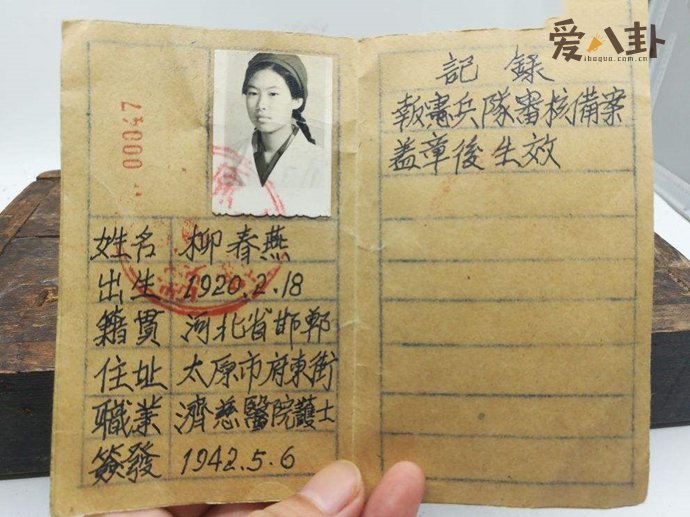 爱八卦
ibagua.com.cn
00047
姓名 柳春燕
出生 1920.2.18
籍貫 河北省邯鄲
住址 太原市府東街
職業 濟慈醫院護士
簽發 1942.5.6
記録
報憲兵隊審核備案
盖章後生效